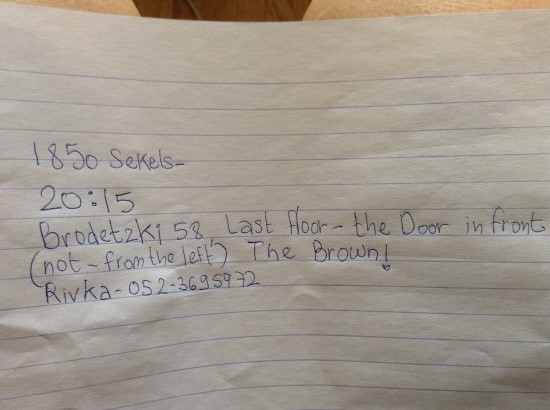 1850 Sekels-
20:15
Brodetzki 58, Last floor - the Door in front
(not - from the left) The Brown!
Rivka - 052-3695972